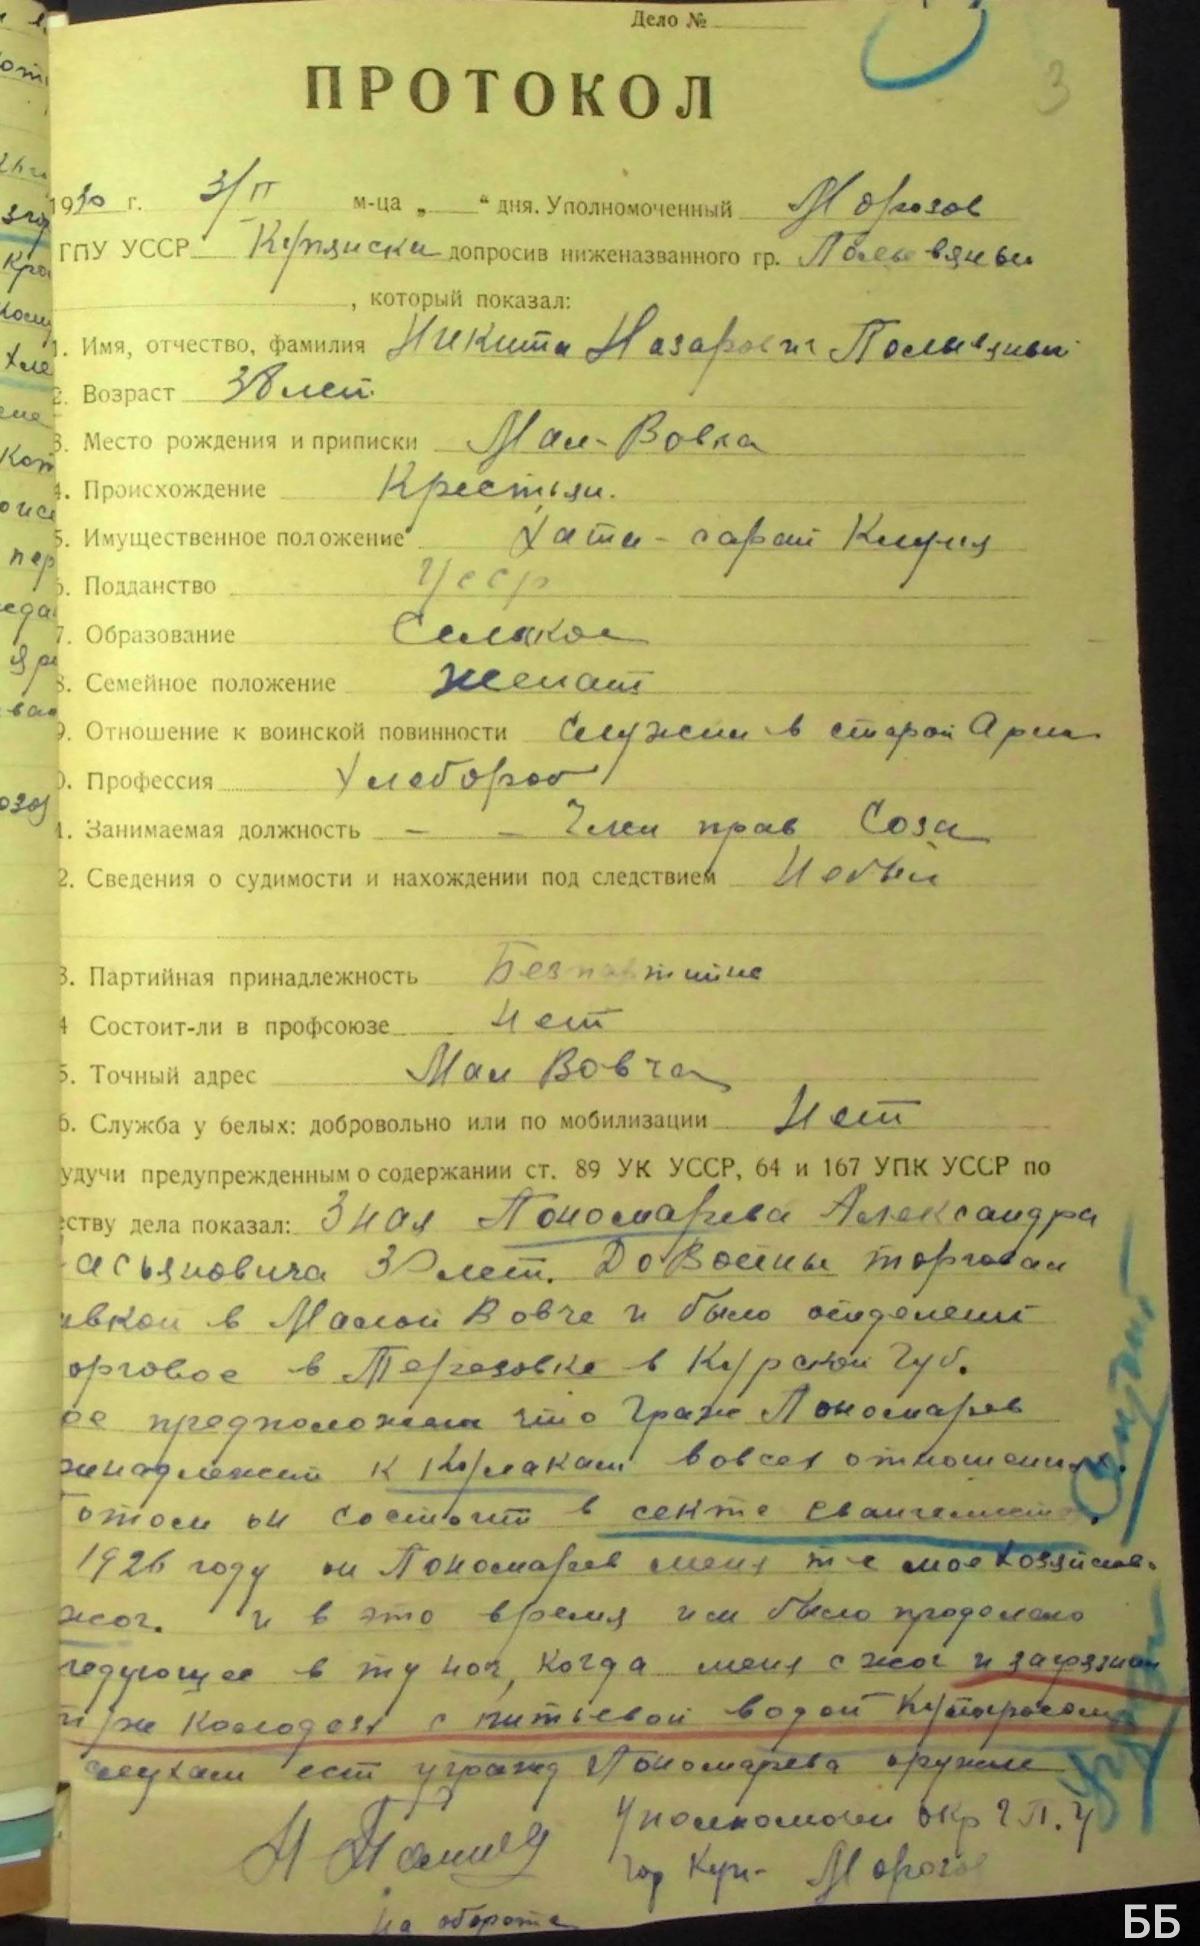 Дело №
3
ПРОТОКОЛ
1930 г. 3/II м-ца „ “ дня. Уполномоченный Морозов
ГПУ УССР Купянски допросив ниженазванного гр. Полывяный
, который показал:
1. Имя, отчество, фамилия Никита Назарович Полывяный
2. Возраст 38 лет.
3. Место рождения и приписки Мал-Вовка
4. Происхождение Крестьян.
5. Имущественное положение Хата - сарай Клуня
6. Подданство Усср
7. Образование Сельское
8. Семейное положение женат
9. Отношение к воинской повинности Служил в старой Арми
0. Профессия Хлебороб
1. Занимаемая должность - - Член прав Соза
2. Сведения о судимости и нахождении под следствием Небыл
3. Партийная принадлежность Безпартийне
4 Состоит-ли в профсоюзе нет
5. Точный адрес Мал Вовча
6. Служба у белых: добровольно или по мобилизации Нет
удучи предупрежденным о содержании ст. 89 УК УССР, 64 и 167 УПК УССР по
еству дела показал: Зная Пономарева Александра
асьяновича лет. До Войны торговал
авкой в Малой Вовче и было отделени
орговое в Терезовке в Курской Губ.
ое предположен что Граж Пономарев
инадлежит к Кулакам вовсех отношениях.
Потом он состоит в секте Евангелистов.
1926 году он Пономарев меня т-е мое хозяйств.
жог. и в это время им было проделано
ледующее в ту ноч, когда меня сжог и загрязнил
три колодезя с питьевой водой Купоросом
слухам ест у гражд Пономарева оружие
Н Полив
Уполномочен окр Г.П.У
гор Куп- Морозов
на обороте
ББ